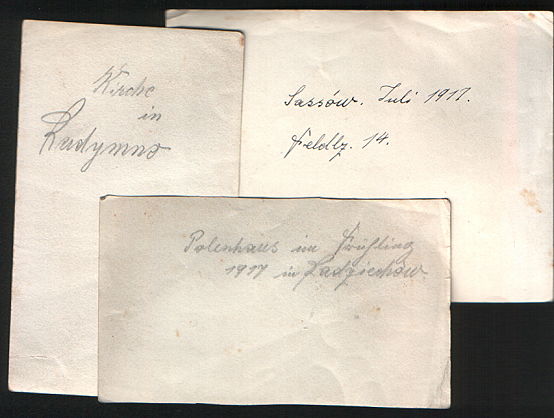 Kirche
in
Radymno
Sassów. Juli 1917.
Feldlz. 14.
Polenhaus im Frühling
1917 in Radziechów.